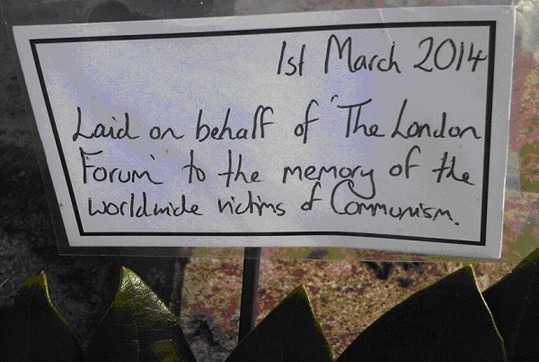 1st March 2014
Laid on behalf of 'The London
Forum' to the memory of the
worldwide victims of Communism.